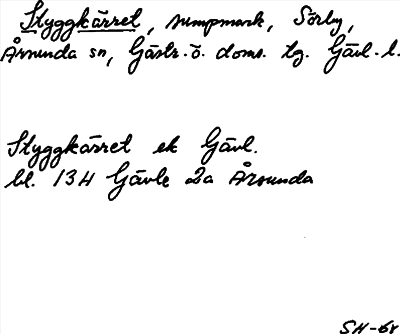 Styggkärret, sumpmark, Sörby,
Årsunda sn, Gästr. ö. doms. tg. Gävl. l.
Styggkärret ek Gävl.
bl. 13H Gävle 2a Årsunda
SH-68